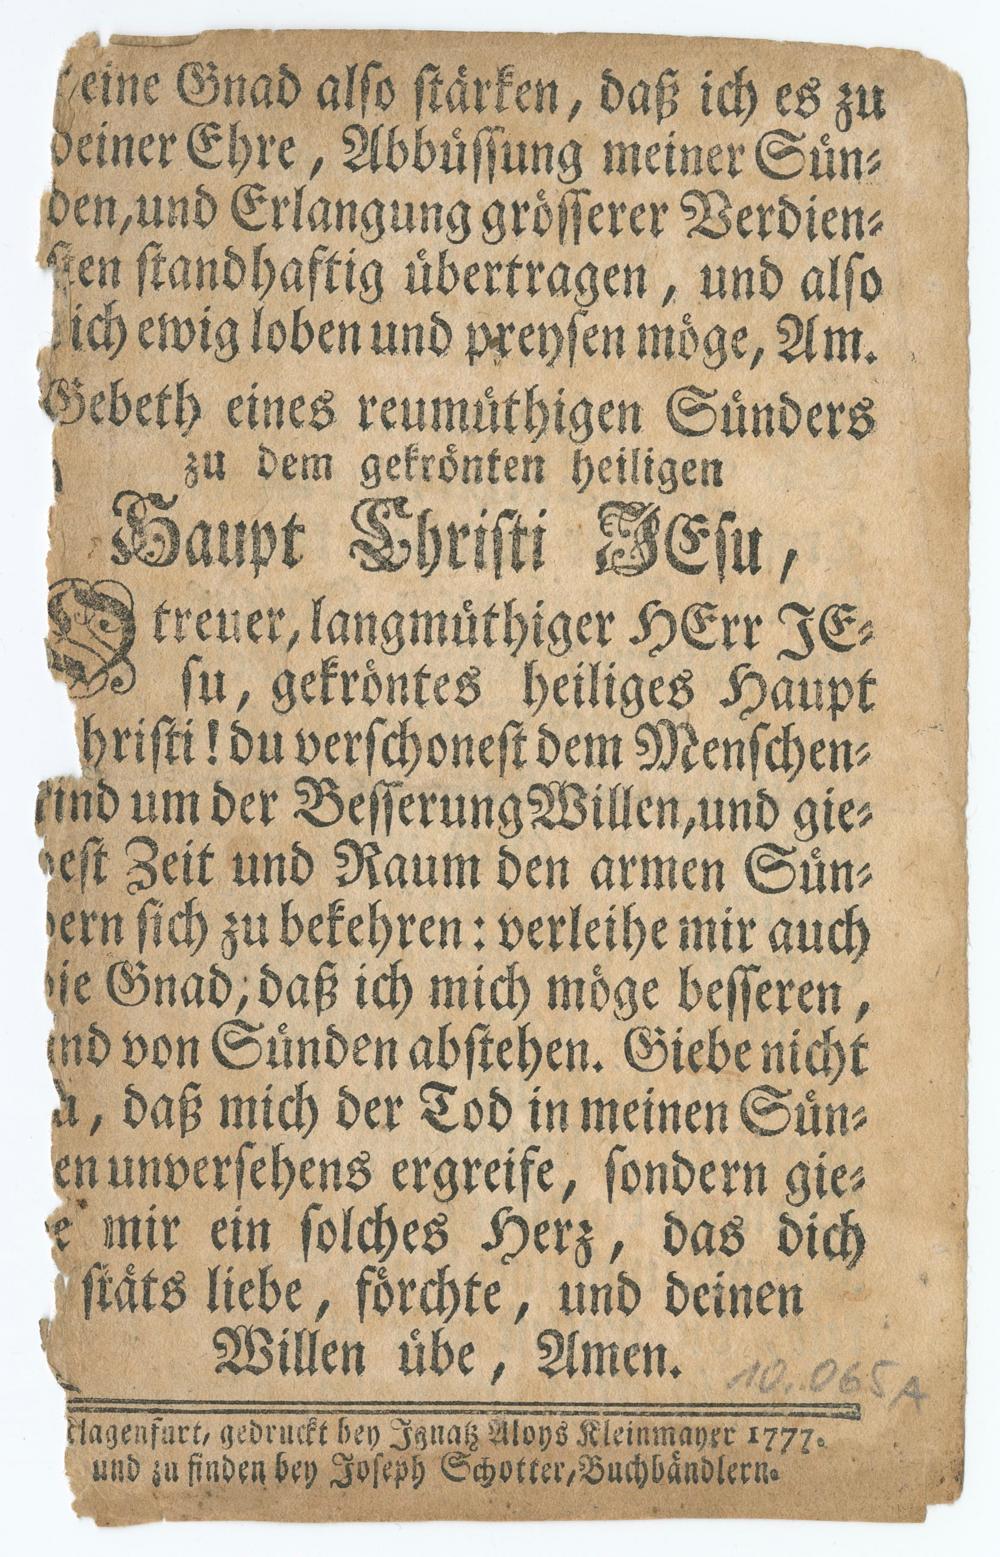 eine Gnad also stärken, daß ich es zu
deiner Ehre, Abbüssung meiner Sün-
den, und Erlangung grösserer Verdien-
sten standhaftig übertragen, und also
ich ewig loben und preysen möge, Am.
Gebeth eines reumüthigen Sünders
zu dem gekrönten heiligen
Haupt Christi JEsu,
O treuer, langmüthiger HErr JE-
su, gekröntes heiliges Haupt
hristi! du verschonest dem Menschen-
kind um der Besserung Willen, und gie-
best Zeit und Raum den armen Sün-
dern sich zu bekehren: verleihe mir auch
die Gnad, daß ich mich möge besseren,
und von Sünden abstehen. Giebe nicht
zu, daß mich der Tod in meinen Sün-
en unversehens ergreife, sondern gie-
e mir ein solches Herz, das dich
stäts liebe, förchte, und deinen
Willen übe, Amen.
10.065A
Clagenfurt, gedruckt bey Ignatz Aloys Kleinmayer 1777.
und zu finden bey Joseph Schotter, Buchbändlern.